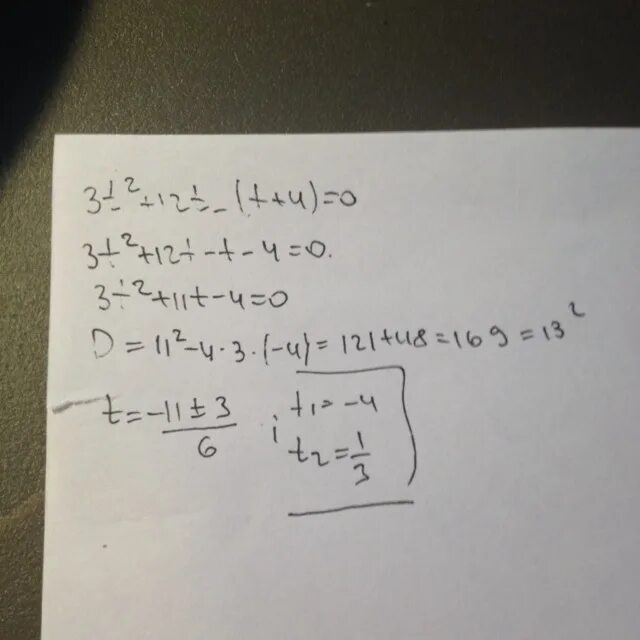 3t²+12t-(t+4)=0
3t²+12t-t-4=0.
3t²+11t-4=0
D=11²-4·3·(-4)=121+48=169=13²
t=\frac{-11±3}{6} ; t1=-4
t2=\frac{1}{3}